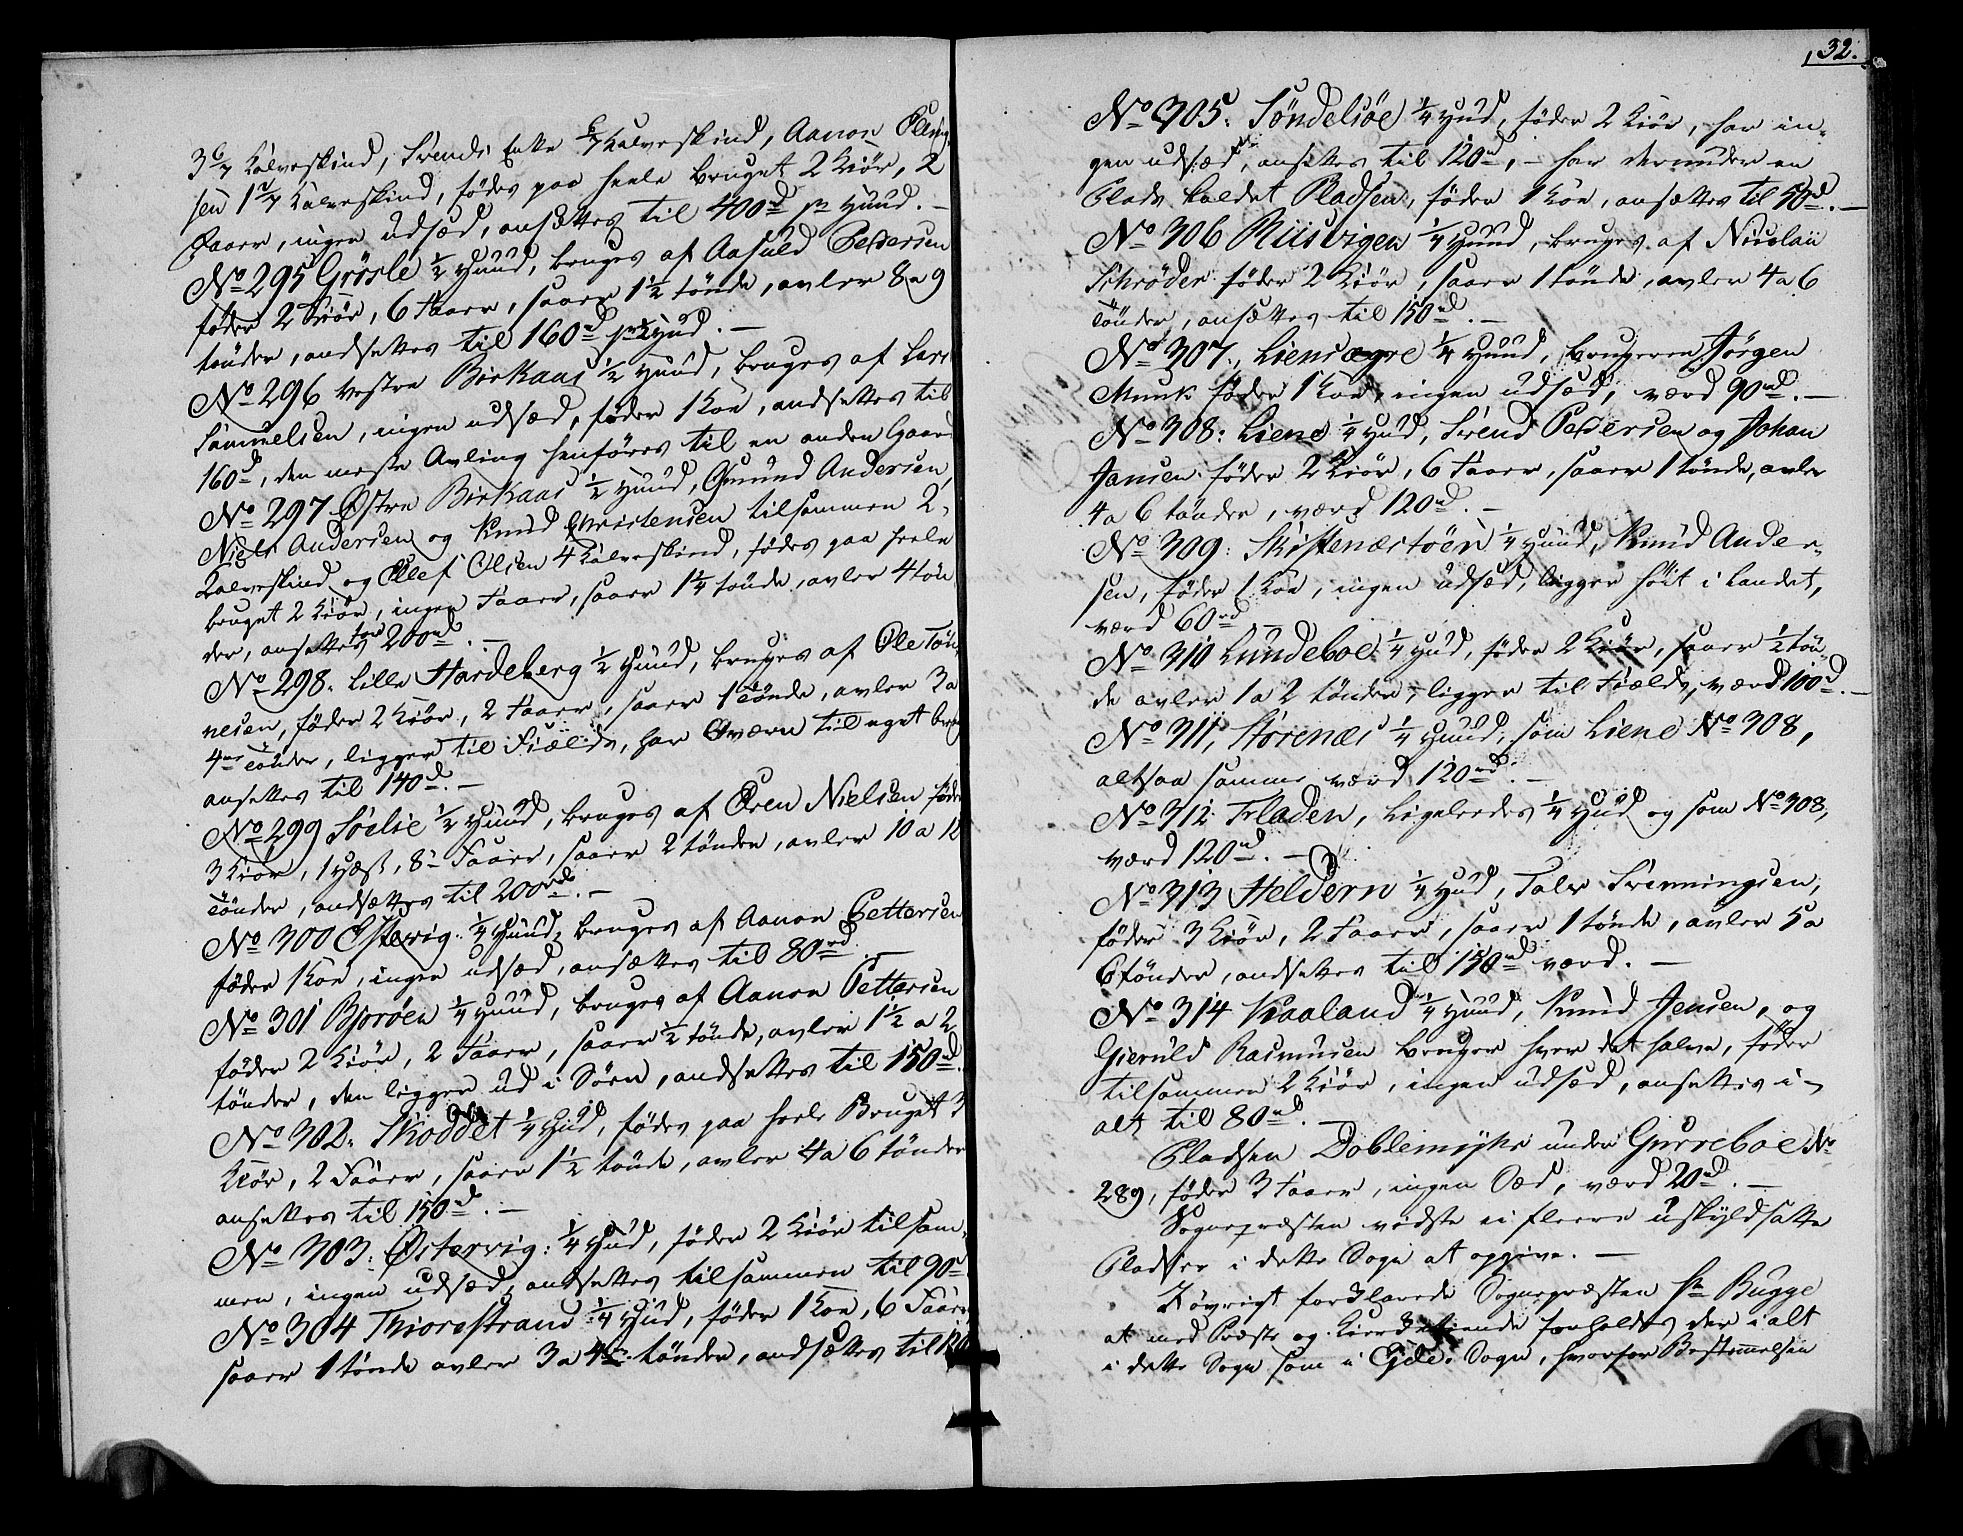 3 6/7 Kalveskind, Svends Enke 6/7 Kalveskind, Aanon
sen 1 5/7 Kalveskind, fødes paa heele bruget 2 Kiør, 2
Faaer, ingen udsæd, ansættes til 400rd pr Huud. -
No 295 Grøsle 1/2 Huud, bruges af Aasuld Pedersen
føder 2 Kiør, 6 Faaer, saaer 1 1/2 tønde, avler 8 a 9
tønder, andsettes til 160rd pr 1/2 Hud. -
No 296 Vestre Birkaas 1/2 Huud, bruges af Lars
Samuelsen, ingen udsæd, føder 1 Koe, andsettes til
160rd, den meste Avling henføres til en anden Gaard
No 297 Østre Birkaas 1/2 Huud, Gunund Andersen,
Niels Andersen og Knud Christensen tilsammen 2,
Kalveskind og Ellef Olsen 4 Kalveskind, fødes paa heele
bruget 2 Kiør, ingen Faaer, saaer 1 1/4 tønde, avler 4 tøn
der, ansettes for 200rd. -
No 298. Lille Hardeberg 1/2 Huud, bruges af Ole Tøn
nesen, føder 2 Kiør, 2 Faaer, saaer 1 Tønde, avler 3 a
4re Tønder, ligger til Fields, har Qværn til eget brug
ansettes til 140rd. -
No 299 Søelie 1/2 Huud, bruges af Oven Nielsen føder
3 Kiør, 1 Hæst, 8te Faaer, saaer 2 tønder, avler 10 a 12
Tønder, andsættes til 200rd. -
No 300 Estevig: 1/4 Huud, bruges af Aanon Pettersen
føder 1 Koe, ingen udsæd, ansættes til 80rd. -
No 301 Bjorøen 1/4 Huud, bruges af Aanon Pettersen
føder 2 Kiør, 2 Faaer, saaer 1/2 tønde, avler 1 1/2 a 2
tønder, den ligger ud i Søen, andsettes til 150rd.
No 302. Skoddet 1/4 Hud, fødes paa heele Bruget 3
Kiør, 2 Faaer, saaer 1 1/2 tønde, avler 4 a 6 tønder
ansettes til 150rd. -
No 303. Østervig: 1/4 Hud, føder 2 Kiør tilsam,
men, ingen udsæd, andsettes tilsammen til 90rd
No 304 Thiorestrand 1/4 Hud, føder 1 Koe, 6 Faaer
saaer 1 tønde avler 3 a 4re tønder, andsættes til 120
32.
No 305. Søndelsøe 1/4 Hud, føder 2 Kiør, har in,
gen udsæd, ansettes til 120rd, - har derunder en
Plads kaldet Pladsen, føder 1 Koe, ansættes til 50rd. -
No 306 Riisvigen 1/4 Huud, bruges af Nicolaii
Schrøder føder 2 Kiør, saaer 1 tønde, avler 4 a 6
Tønder, ansættes til 150rd. -
No 307., Liensægre 1/4 Huud, brugeren Jørgen
Munk føder 1 Koe, ingen udsæd, værd 90rd. -
No 308: Liene 1/4 Hud, Svend Pedersen og Johan
Jansen føder 2 Kiør, 6 Faaer, saaer 1 tønde, avler
4 a 6 tønder, værd 120rd. -
No 309: Skistenæstøen 1/4 Huud, Knud Ander,
sen, føder 1 Koe, ingen udsæd, ligger høit i Landet,
værd 60rd -
No 310 Lundeboe 1/4 Hud, føder 2 Kiør, saaer 1/2 tøn
de avler 1 a 2 tønder, ligger til Fields, værd 100rd. -
No 311, Størenæs 1/4 Huud, som Liene No 308,
altsaa samme værd 120rd. -
No 312 Fladen, Ligeledes 1/4 Hud og som No 308,
værd 120rd. -
No 313 Heldern 1/4 Hud, Talv Svenningsen,
føder 3 Kiør, 2 Faaer, saaer 1 tønde, avler 5 a
6 tønder, andsettes til 150rd værd. -
No 314 Kaaland 1/4 Huud, Knud Jensen, og
Gieruld Rasmusen bruger hver det halve, føder
tilsammen 2 Kiør, ingen udsæd, ansettes i-
alt til 80rd. -
Pladsen Doblemyhr under Gurreboe No
289, føder 3 Faaer, ingen Sæd, værd 20rd. -
Sognepræsten vidste ei fleere uskyldsatte
Pladser i dette Sogn at opgive. -
I øvrigt forklarede Sognepræsten Hr Bugge
at med Præste og Kirke tiende forholdes der i alt
i dette Sogn som i Gieve Sogn, hvorfor Bestemmelsen